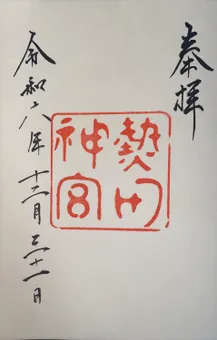 奉拝
熱田
神宮
令和六年十二月三十一日